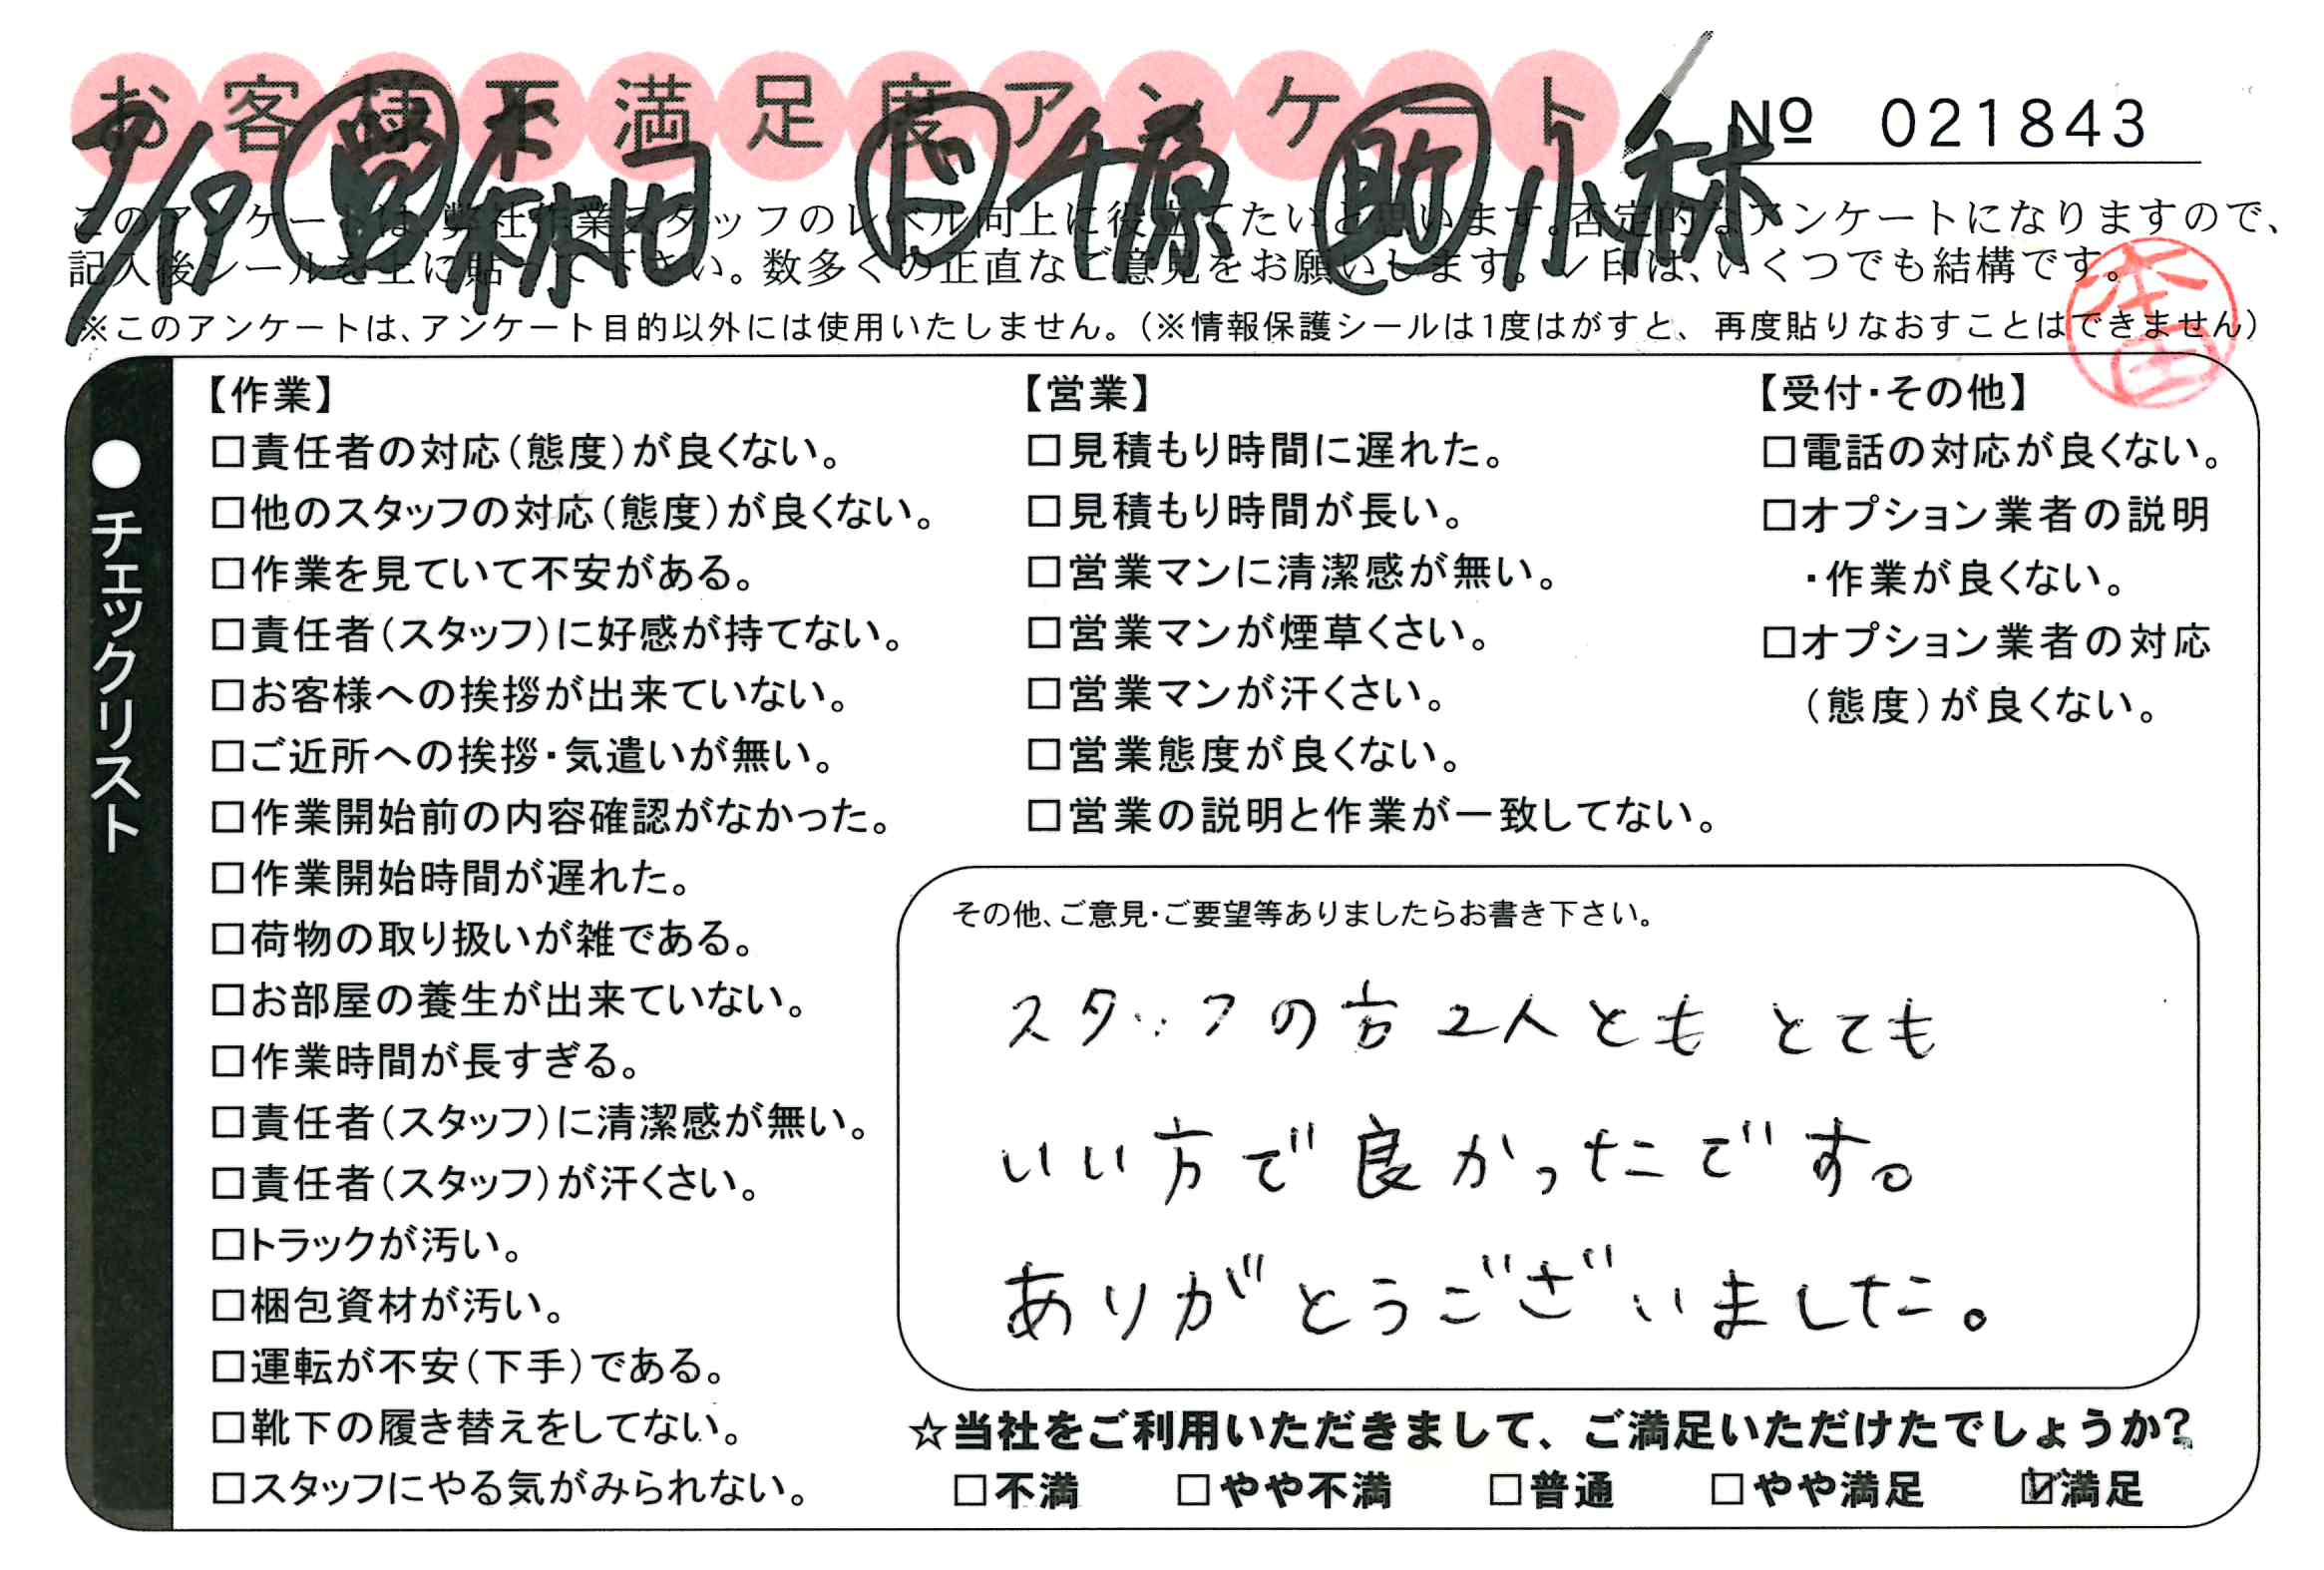 お客様不満足度アンケート
№ 021843
9/19 ド 千原 助 小林
このアンケートは、弊社作業スタッフのレベル向上に役立てたいと思います。否定的なアンケートになりますので、
記入後シールを上に貼って下さい。数多くの正直なご意見をお願いします。✓印は、いくつでも結構です。
※このアンケートは、アンケート目的以外には使用いたしません。（※情報保護シールは1度はがすと、再度貼りなおすことはできません）
●チェックリスト
【作業】
□責任者の対応（態度）が良くない。
□他のスタッフの対応（態度）が良くない。
□作業を見ていて不安がある。
□責任者（スタッフ）に好感が持てない。
□お客様への挨拶が出来ていない。
□ご近所への挨拶・気遣いが無い。
□作業開始前の内容確認がなかった。
□作業開始時間が遅れた。
□荷物の取り扱いが雑である。
□お部屋の養生が出来ていない。
□作業時間が長すぎる。
□責任者（スタッフ）に清潔感が無い。
□責任者（スタッフ）が汗くさい。
□トラックが汚い。
□梱包資材が汚い。
□運転が不安（下手）である。
□靴下の履き替えをしてない。
□スタッフにやる気がみられない。
【営業】
□見積もり時間に遅れた。
□見積もり時間が長い。
□営業マンに清潔感が無い。
□営業マンが煙草くさい。
□営業マンが汗くさい。
□営業態度が良くない。
□営業の説明と作業が一致してない。
【受付・その他】
□電話の対応が良くない。
□オプション業者の説明
・作業が良くない。
□オプション業者の対応
（態度）が良くない。
その他、ご意見・ご要望等ありましたらお書き下さい。
スタッフの方2人とも とても
いい方で良かったです。
ありがとうございました。
☆当社をご利用いただきまして、ご満足いただけたでしょうか？
□不満 □やや不満 □普通 □やや満足 ☑満足